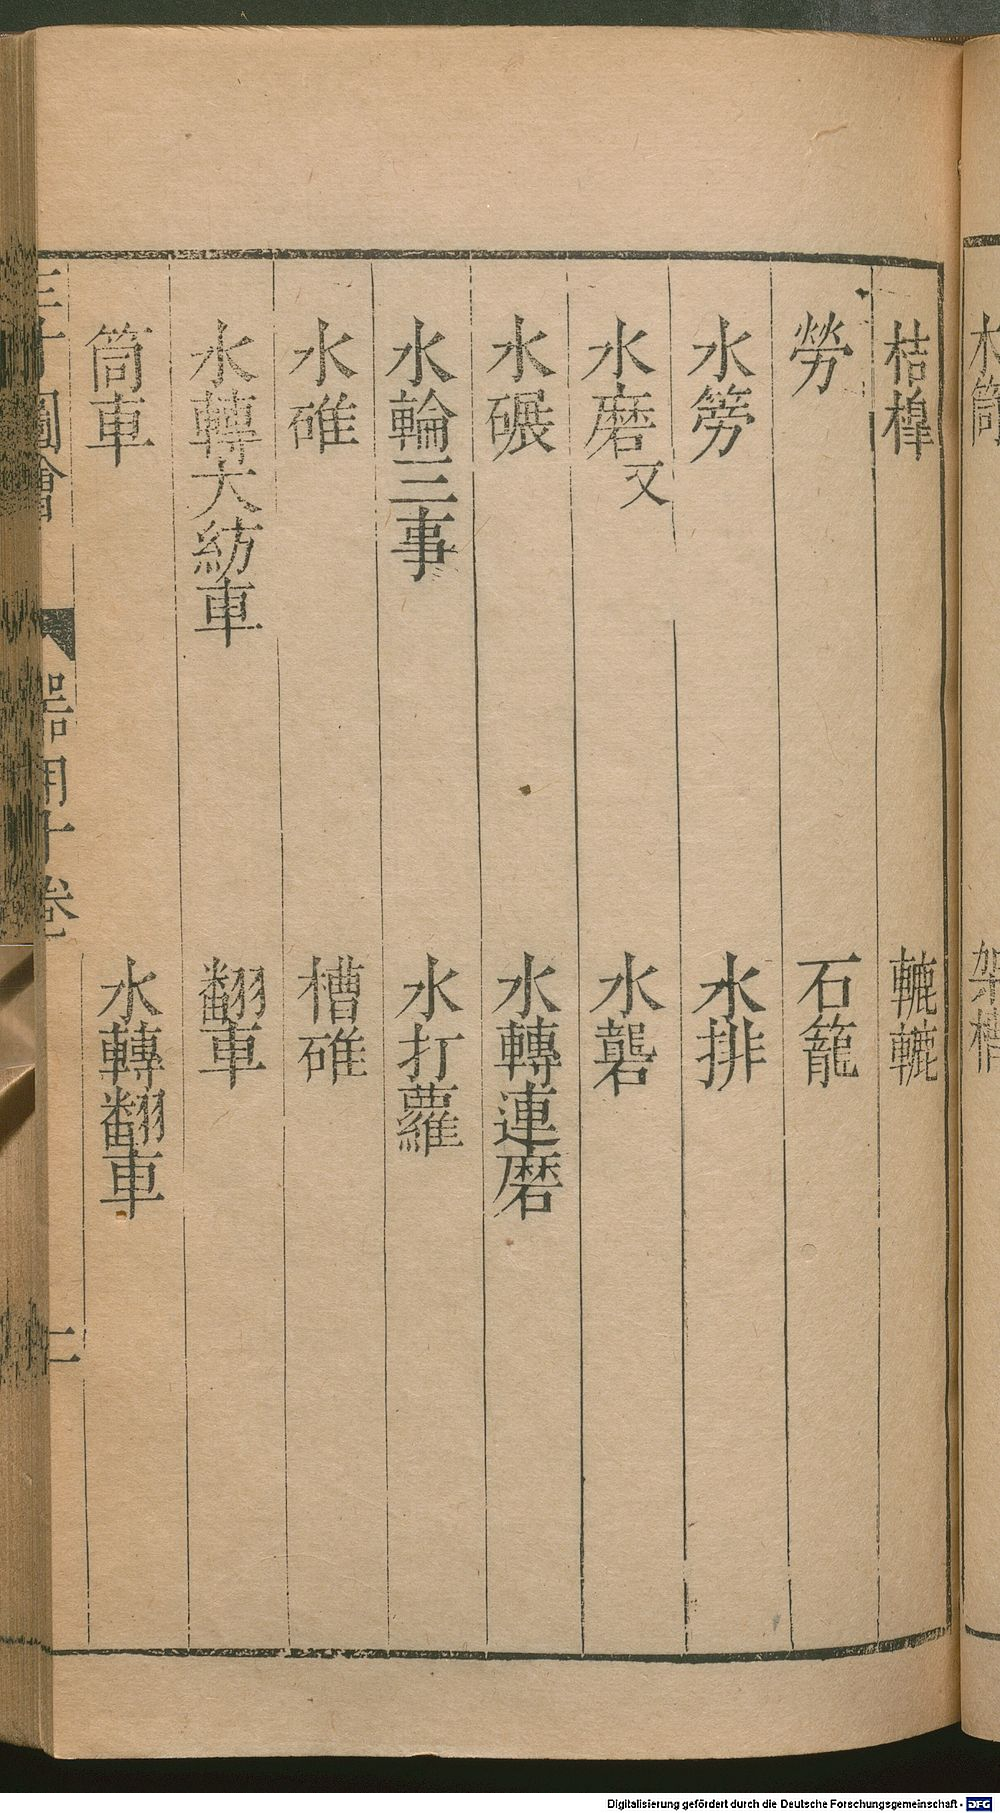 木筒
架槽
桔槹
轆轆
勞
石籠
水篣
水排
水磨又
水礱
水碾
水轉連磨
水輪三事
水打蘿
水碓
槽碓
水轉大紡車
翻車
筒車
水轉翻車
三才圖會
器用十卷
二
Digitalisierung gefördert durch die Deutsche Forschungsgemeinschaft - DFG